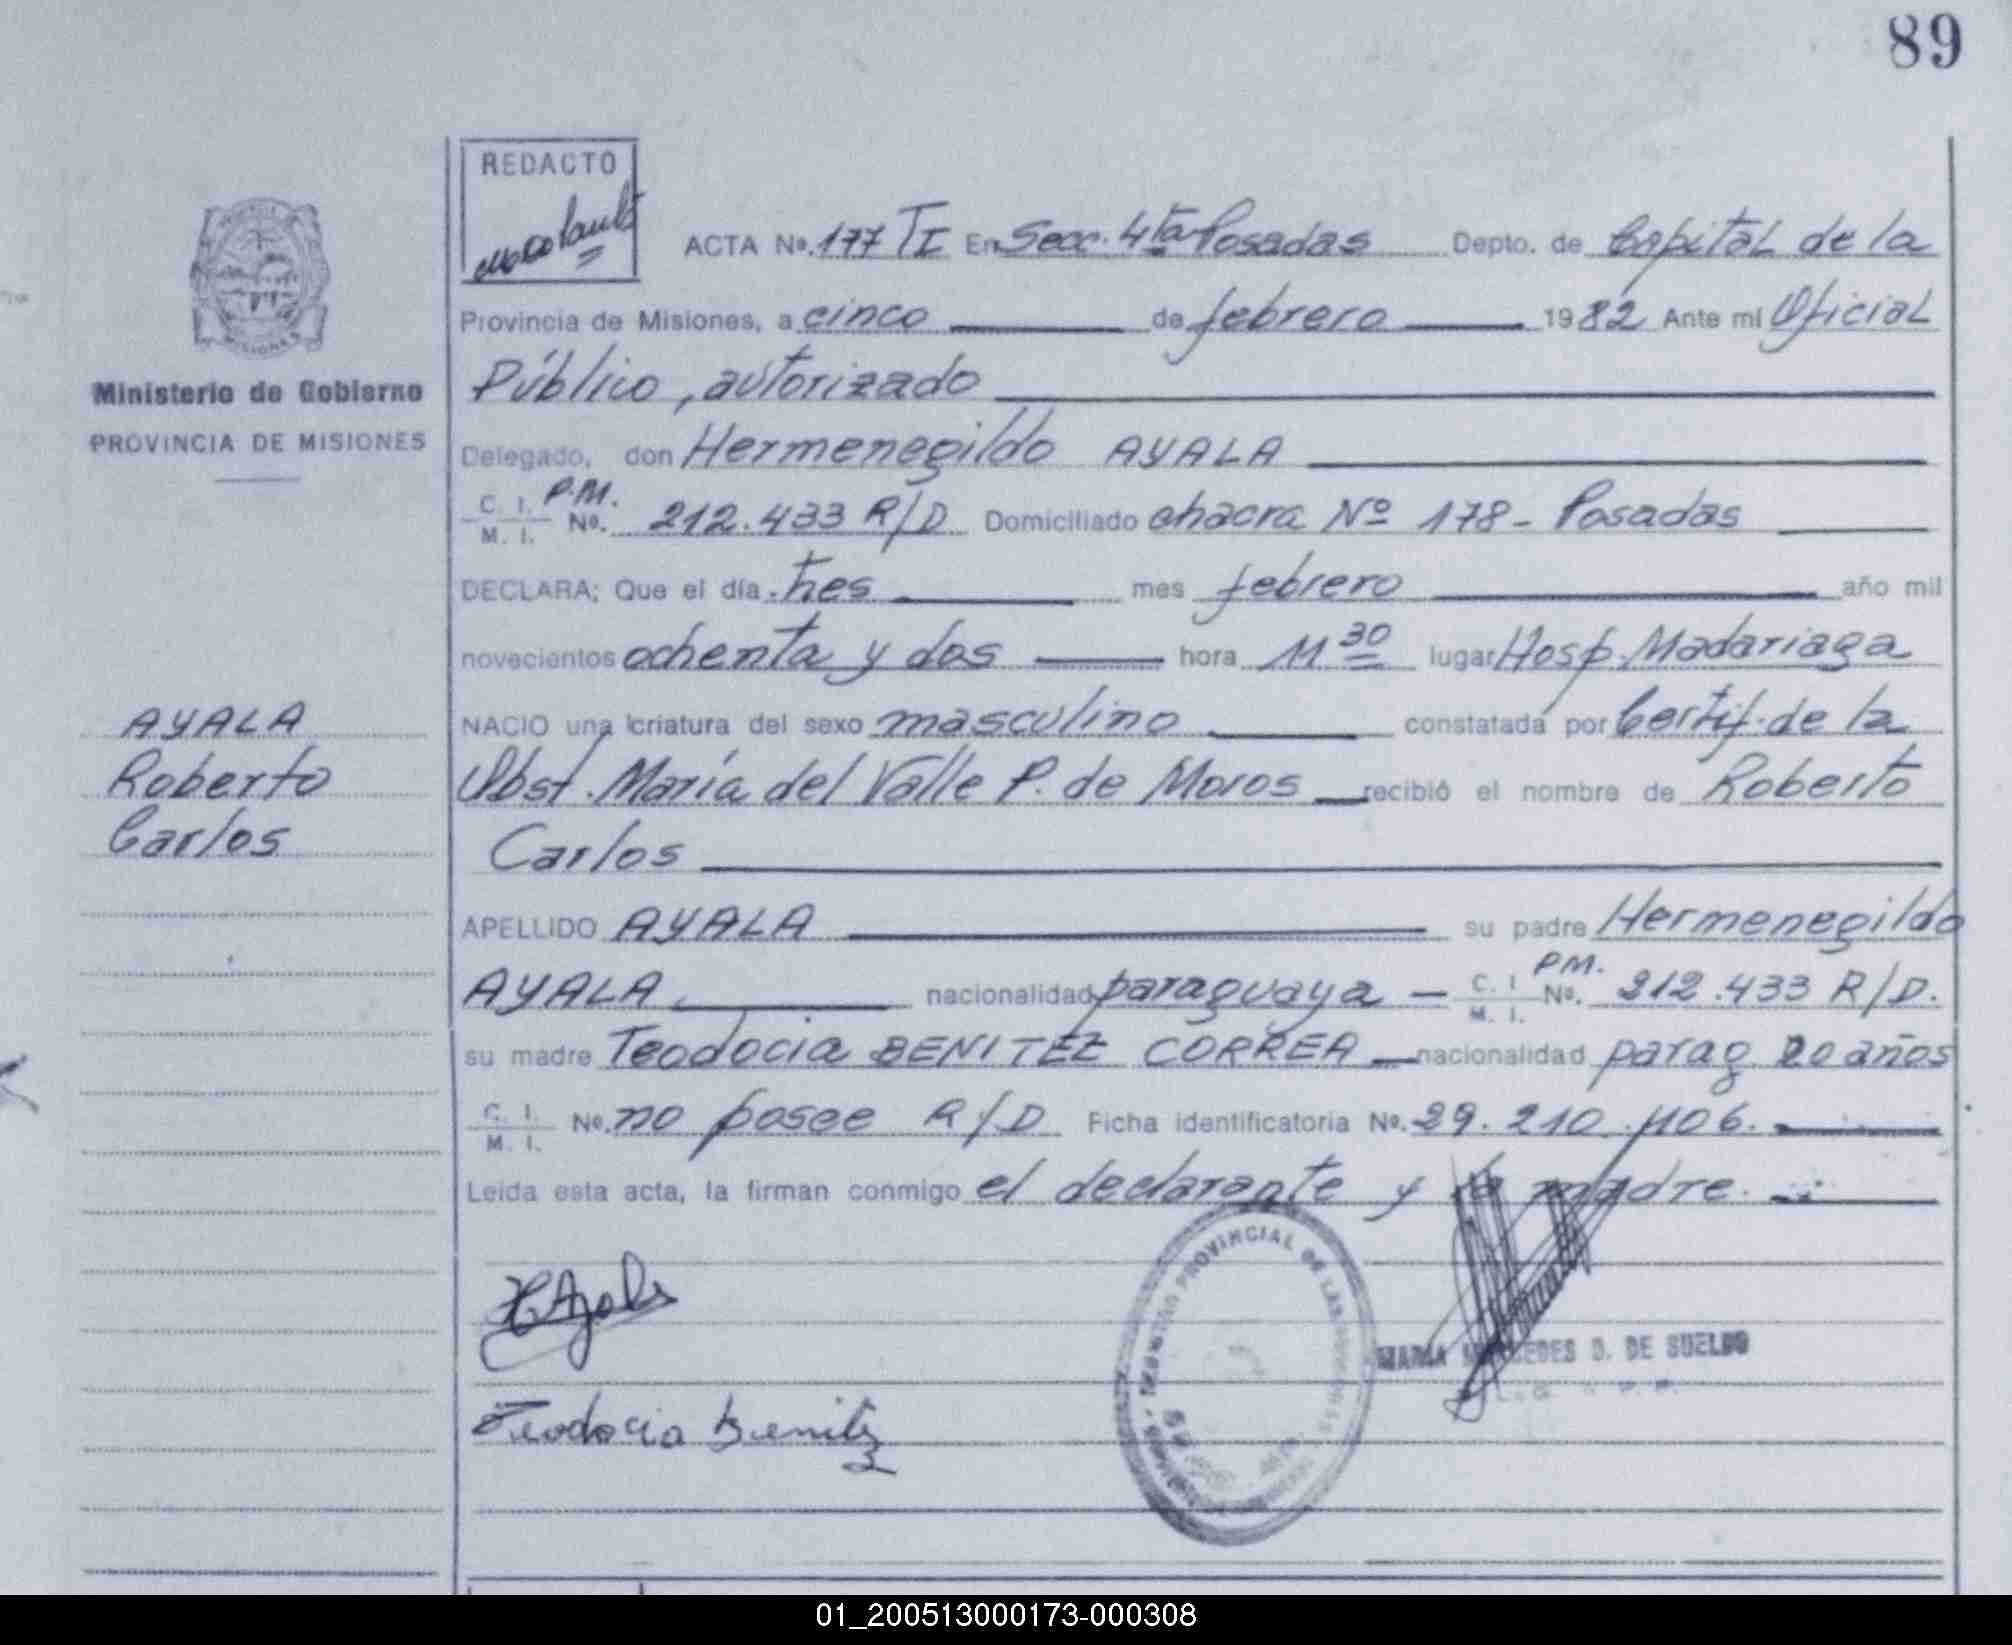 89
REDACTO
ACTA Nº. 177 TI En Secc. 4ta Posadas Depto. de Capital de la
Provincia de Misiones, a cinco de febrero 1982 Ante mi Oficial
Público, autorizado
Ministerio de Gobierno
PROVINCIA DE MISIONES
Delegado, don Hermenegildo AYALA
C. I. M. I. P.M. Nº. 212.433 R/D Domiciliado chacra Nº 178 - Posadas
DECLARA; Que el día tres mes febrero año mil
novecientos ochenta y dos hora 11 30 lugar Hosp. Madariaga
AYALA
Roberto
Carlos
NACIO una criatura del sexo masculino constatada por Certif. de la
Obst. María del Valle P. de Moros recibió el nombre de Roberto
Carlos
APELLIDO AYALA su padre Hermenegildo
AYALA nacionalidad paraguaya - C. I. M. I. P.M. Nº. 212.433 R/D.
su madre Teodocia BENITEZ CORREA nacionalidad parag 20 años
C. I. M. I. Nº. no posee R/D Ficha identificatoria Nº. 29.210.106.
Leída esta acta, la firman conmigo el declarante y la madre.
H Ayala
PROVINCIAL DE LAS
MARIA MERCEDES D. DE SUELDO
Teodocia Benitez
01_200513000173-000308